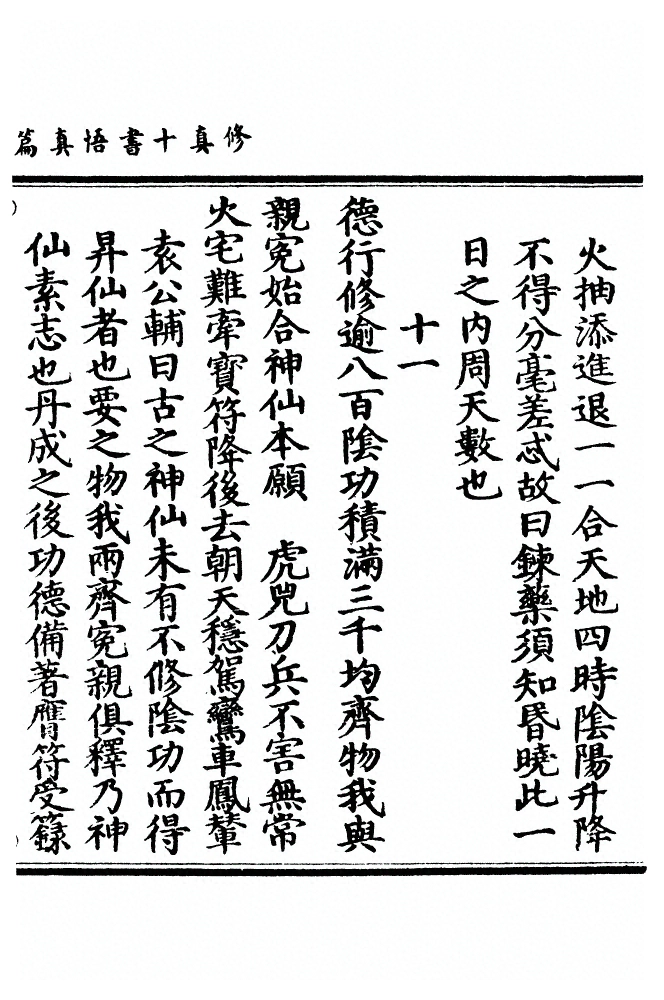 修真十書悟真篇
火抽添進退一一合天地四時陰陽升降
不得分毫差忒故曰鍊藥須知昏曉此一
日之內周天數也
十一
德行修逾八百陰功積滿三千均齊物我與
親冤始合神仙本願　虎兕刀兵不害無常
火宅難牽寶符降後去朝天穩駕鸞車鳳輦
袁公輔曰古之神仙未有不修陰功而得
昇仙者也要之物我兩齊冤親俱釋乃神
仙素志也丹成之後功德備著膺符受籙